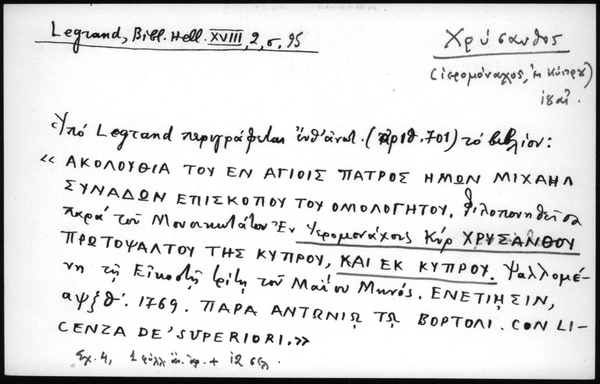 Legrand, Bibl. Hell. XVIII, 2, σ. 95
Χρύσανθος
(ἱερομόναχος, ἐκ Κύπρου)
ιϛ αἰ.
Ὑπὸ Legrand περιγράφεται ἐνθ' ἀνωτ. (ἀριθ. 701) τὸ βιβλίον:
« ΑΚΟΛΟΥΘΙΑ ΤΟΥ ΕΝ ΑΓΙΟΙΣ ΠΑΤΡΟΣ ΗΜΩΝ ΜΙΧΑΗΛ
ΣΥΝΑΔΩΝ ΕΠΙΣΚΟΠΟΥ ΤΟΥ ΟΜΟΛΟΓΗΤΟΥ. Φιλοπονηθεῖσα
παρὰ τοῦ Μουσικωτάτου Ἐν Ἱερομονάχοις Κὺρ ΧΡΥΣΑΝΘΟΥ
ΠΡΩΤΟΨΑΛΤΟΥ ΤΗΣ ΚΥΠΡΟΥ, ΚΑΙ ΕΚ ΚΥΠΡΟΥ. Ψαλλομέ-
νη τῇ Εἰκοστῇ τρίτῃ τοῦ Μαΐου Μηνός. ΕΝΕΤΙΗΣΙΝ,
αψξθʹ. 1769. ΠΑΡΑ ΑΝΤΩΝΙῼ Τῼ ΒΟΡΤΟΛΙ. CON LI-
CENZA DE' SUPERIORI. »
Σχ. 4, 1 φύλλ. + 12 σελ.